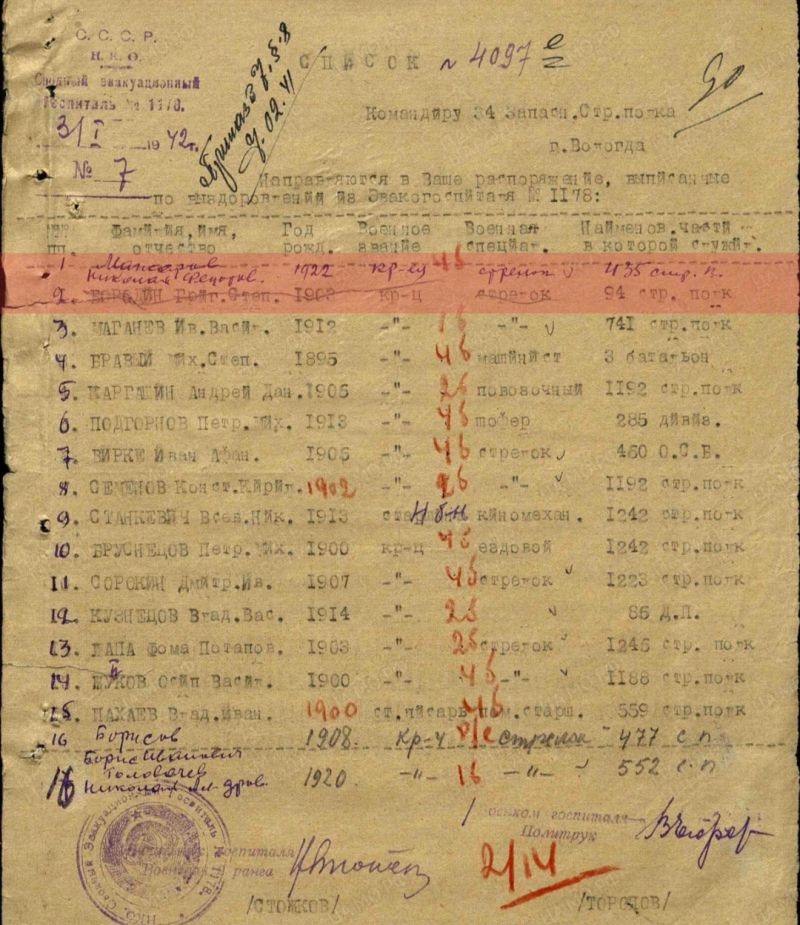 С.С.С.Р.
Н.К.О.
Сводный эвакуационный
Госпиталь № 1178.
31/I 1942 г.
№ 7
СПИСОК № 4097
90
Приказ 7. § 8
2.02.41
Командиру 34 Запасн.Стр.полка
г.Вологда
Направляются в Ваше распоряжение, выписанные
по выздоровлении из Эвакогоспиталя № 1178:
№№ Фамилия,имя, Год Военное Военная Наименов.части
пп. отчество рожд. звание специал. в которой служил.
1 Николай Федоров. 1922 кр-ец 4б стрелок 435 стр. п.
2. БОРОДИН Григ.Степ. 1903 кр-ц стрелок 94 стр. полк
3. МАГАНЕВ Ив.Васил. 1912 -"- 1б -"- 741 стр.полк
4. БРАВЫЙ Мих.Степ. 1895 -"- 4б машинист 3 батальон
5. КАРГАШИН Андрей Дан. 1905 -"- 2б повозочный 1192 стр.полк
6. ПОДГОРНОВ Петр.Мих. 1913 -"- 4б шофер 285 дивиз.
7. ВИРКЕ Иван Афан. 1905 -"- 4б стрелок 450 О.С.Б.
8. СЕМЕНОВ Конст.Кирил. 1902 -"- 2б -"- 1192 стр.полк
9. СТАНКЕВИЧ Всев.Ник. 1913 киномехан. 1242 стр.полк
10. БРУСНЕЦОВ Петр.Мих. 1900 кр-ц 4б ездовой 1242 стр.полк
11. СОРОКИН Дмитр.Ив. 1907 -"- 4б стрелок 1223 стр.полк
12. КУЗНЕЦОВ Влад.Вас. 1914 -"- 2б 86 Д.П.
13. ЛАПА Фома Потапов. 1903 -"- 2б стрелок 1245 стр. полк
14. ЖУКОВ Осип Васил. 1900 -"- 4б -"- 1188 стр.полк
15. ПАХАЕВ Влад.Иван. 1900 ст.писарь 4б пом.старш. 559 стр.полк
16 Борисов 1908. кр-ц стрелок 477 с п
Борис Иванович
Головачев
Николай Ал-дров. 1920. -"- 1б -"- 552 с.п
Военком госпиталя
Политрук
госпиталя
Военврач ранга
2/IV
/СТОЖКОВ/ /ТОРОПОВ/